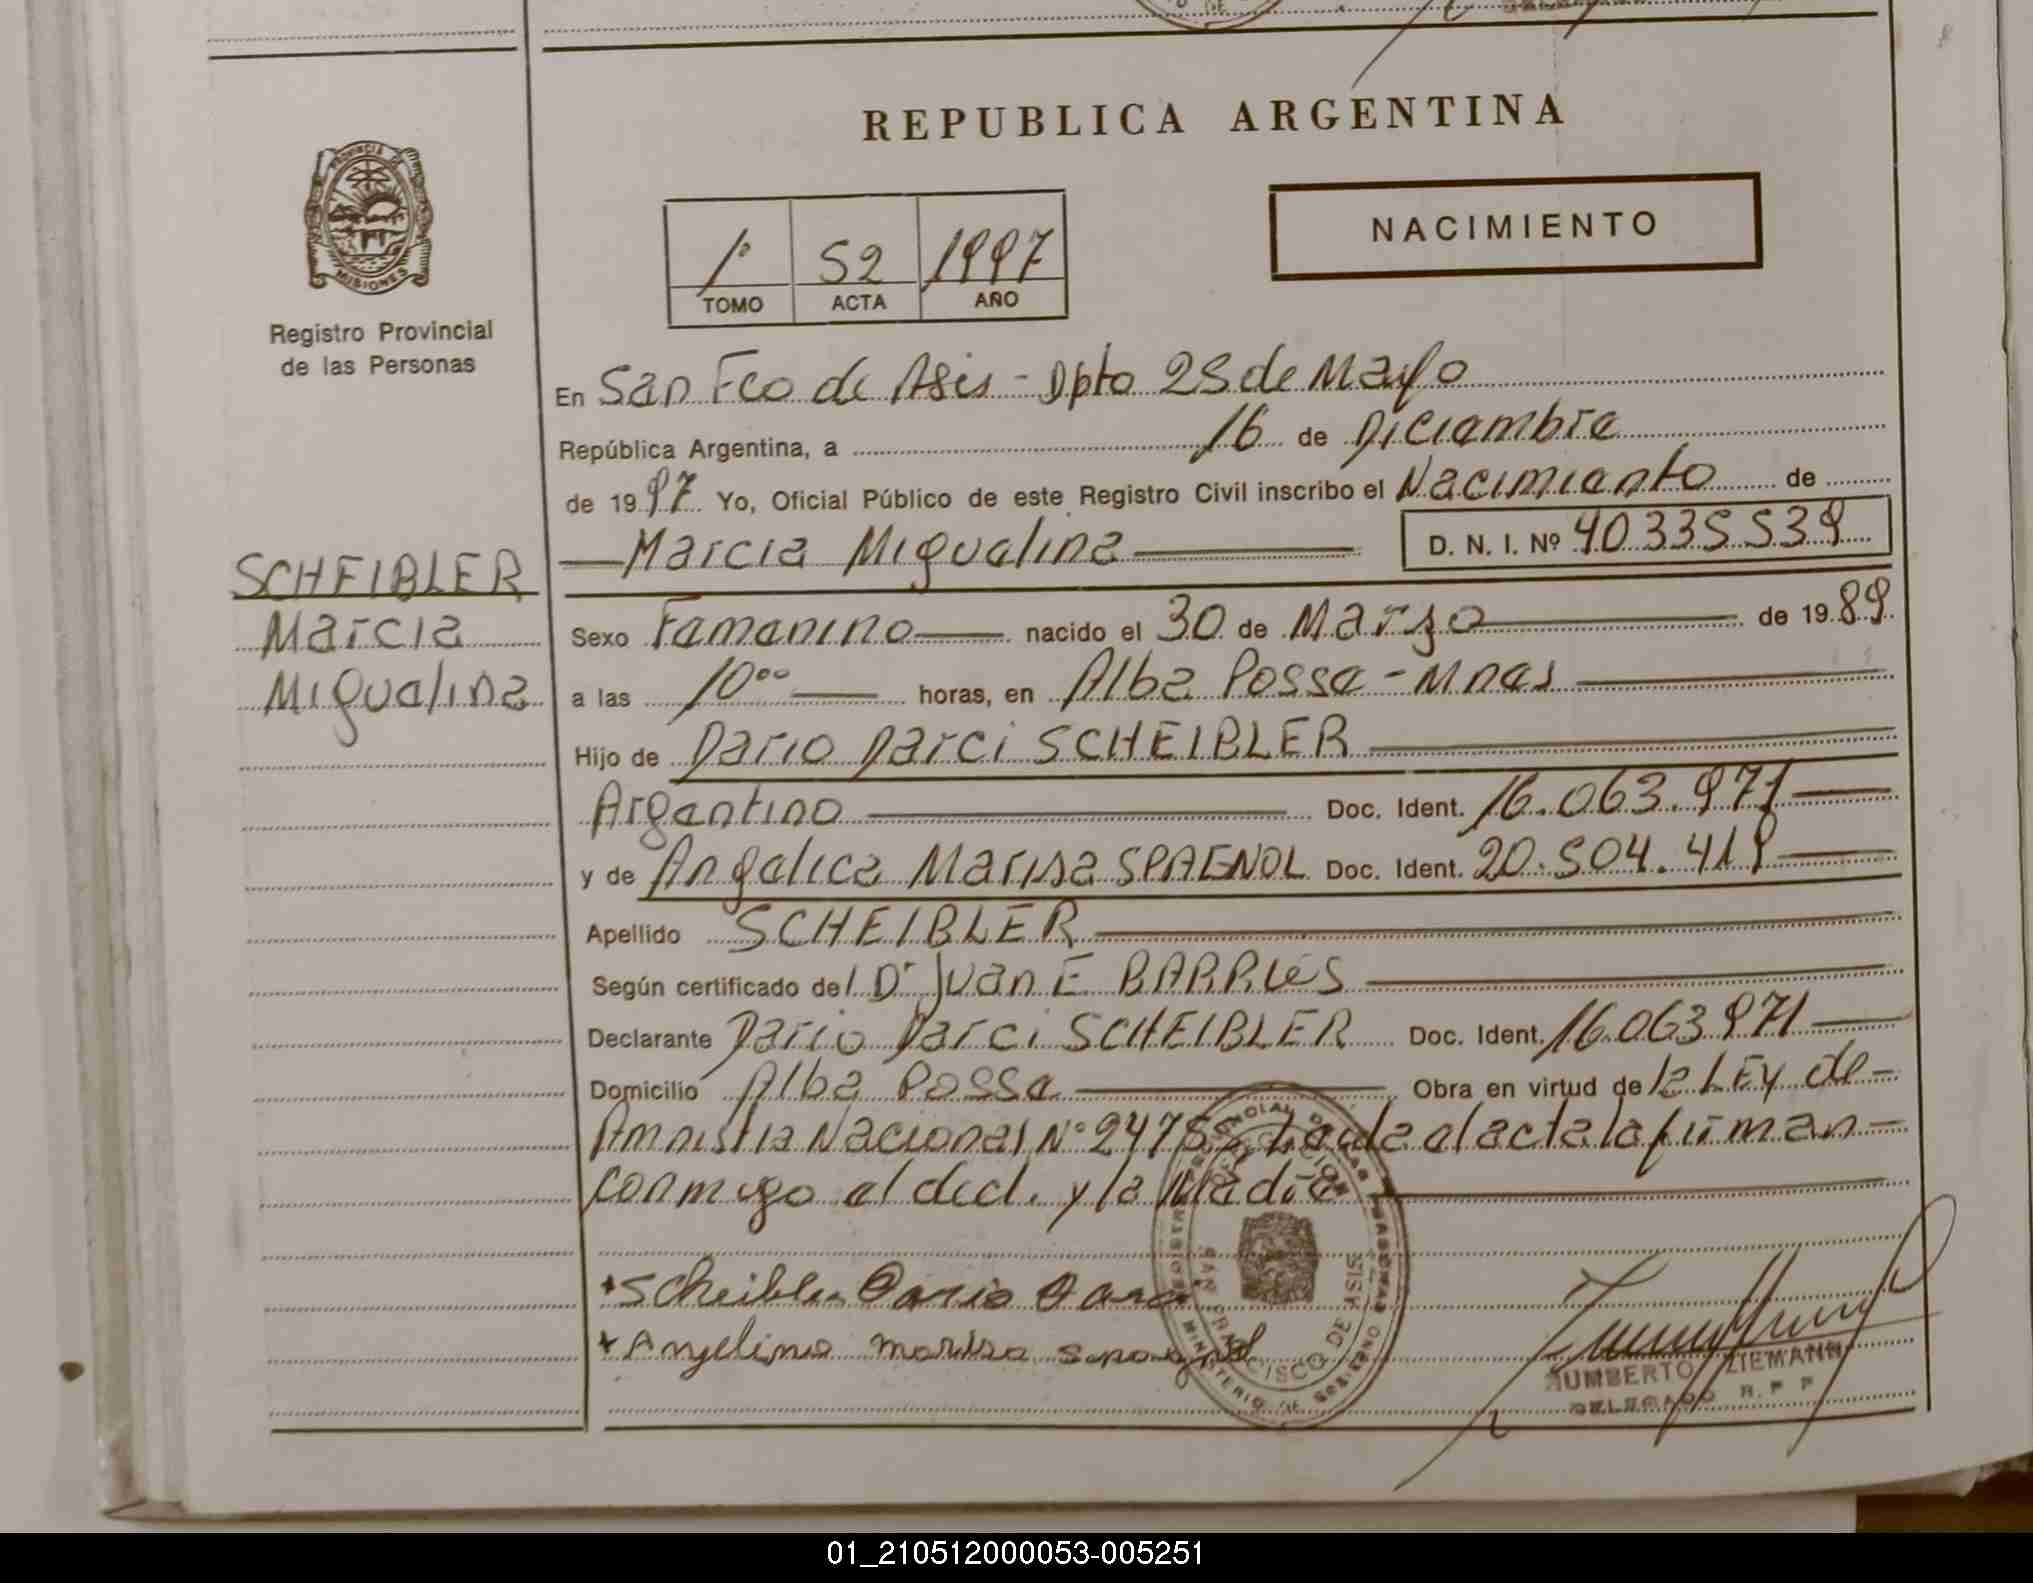 REPUBLICA ARGENTINA
NACIMIENTO
PROVINCIA DE MISIONES
Registro Provincial
de las Personas
1º 52 1997
TOMO ACTA AÑO
En San Fco de Asis - Dpto 25 de Mayo
República Argentina, a 16 de Diciembre
de 1997 Yo, Oficial Público de este Registro Civil inscribo el Nacimiento de
Marcia Miguelina D. N. I. Nº 40335539
SCHEIBLER
Marcia
Miguelina
Sexo Femenino nacido el 30 de Marzo de 1989
a las 10⁰⁰ horas, en Alba Posse - Mnes
Hijo de Dario Darci SCHEIBLER
Argentino Doc. Ident. 16.063.971
y de Angelica Marisa SPAGNOL Doc. Ident. 20.504.419
Apellido SCHEIBLER
Según certificado del Dr Juan E
Declarante Dario Darci SCHEIBLER Doc. Ident. 16.063.971
Domicilio Alba Posse Obra en virtud de la LEY de
Amnistia Nacional Nº 2475 Leida el acta la firman
conmigo el decl. y la Madre
+ Scheibler Dario Darci
+ Angelica marisa spagnol
REGISTRO PROVINCIAL DE LAS PERSONAS
MINISTERIO DE GOBIERNO
DELEGACION
SAN FRANCISCO DE ASIS
HUMBERTO ZIEMANN
DELEGADO R. P. P.
01_210512000053-005251